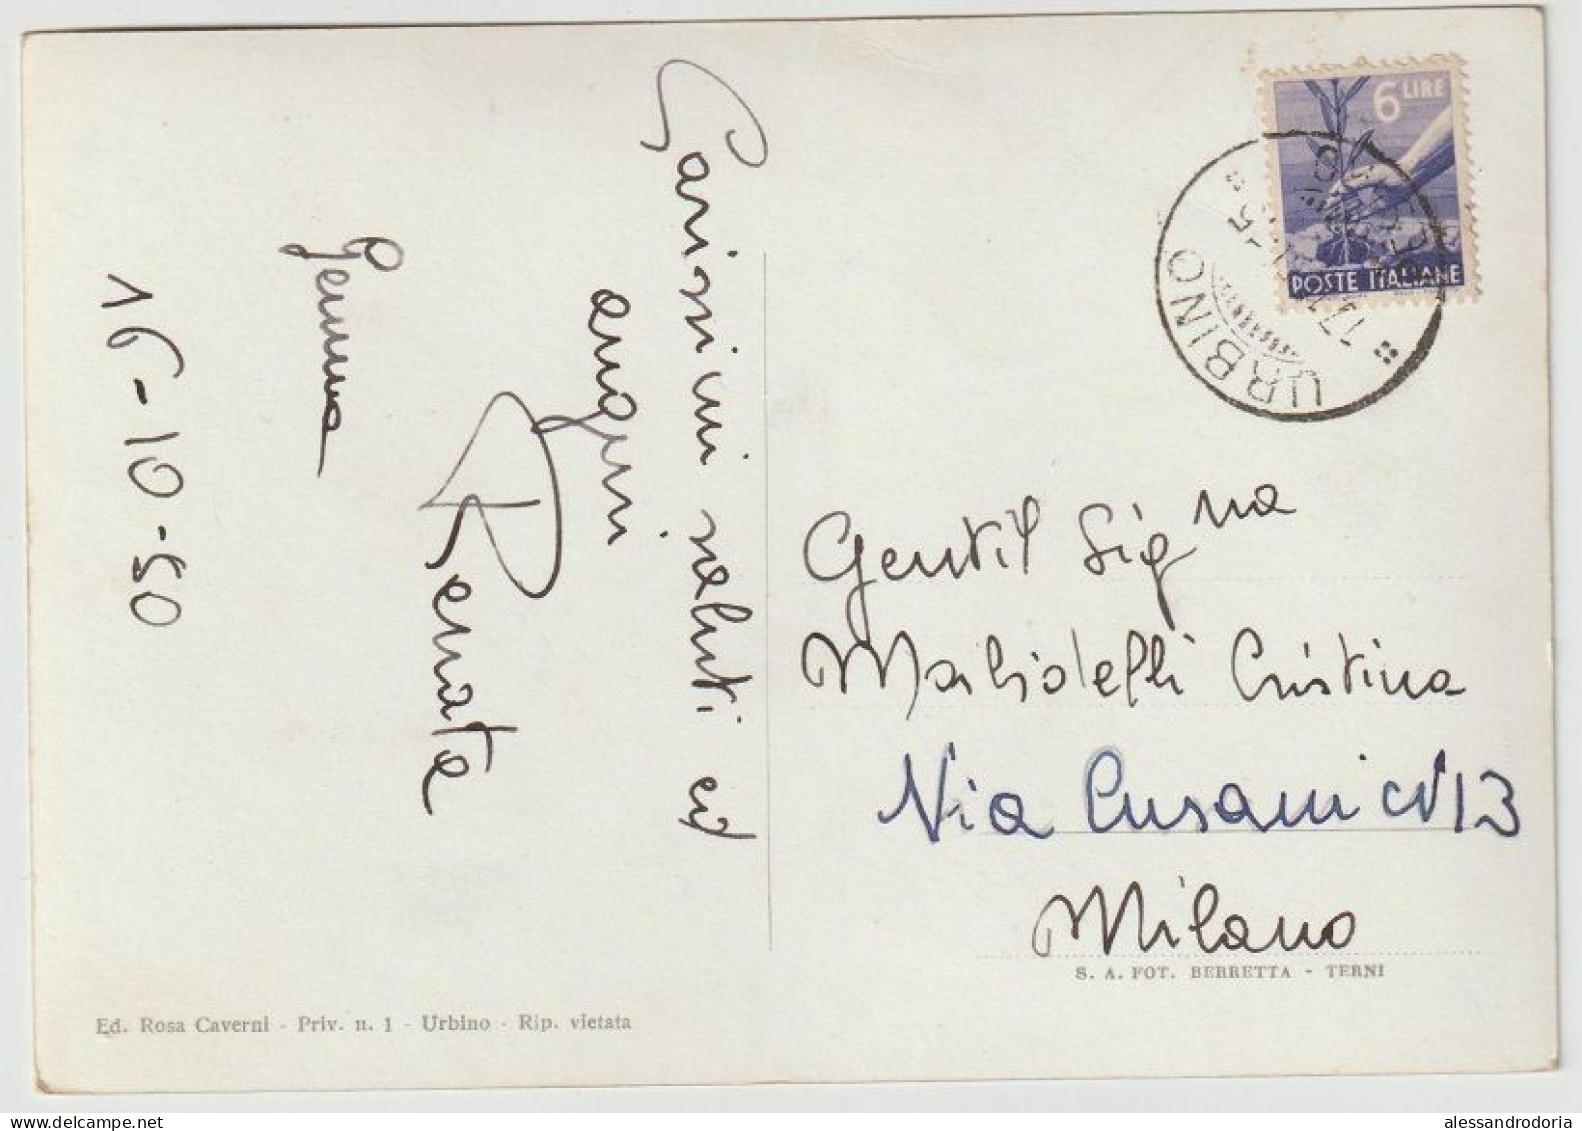 Carissimi saluti ed
auguri
Renata
Gemma
16-10-50
6 LIRE
POSTE ITALIANE
URBINO
Gentil Sigⁿᵃ
Cristina
Via Cusani N 13
Milano
S. A. FOT. BERRETTA - TERNI
Ed. Rosa Caverni - Priv. n. 1 - Urbino - Rip. vietata
alessandrodoria